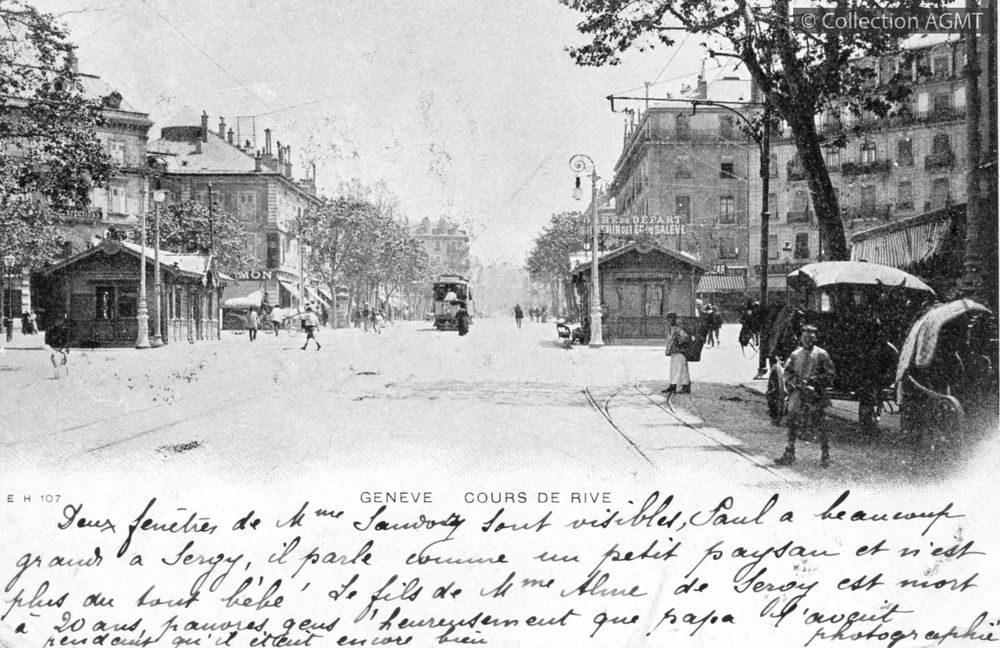 © Collection AGMT
GARE DE DÉPART
CHEMIN DE FER DU SALÈVE
MON
ZAR
E H 107
GENÈVE COURS DE RIVE
Deux fenêtres de Mme sont visibles, Paul a beaucoup
grandi à Sergy, il parle comme un petit paysan et n'est
plus du tout bébé! Le fils de Mme Alme de Sergy est mort
à 20 ans, pauvres gens! heureusement que papa l'avait photographié
pendant qu'il était encore bien